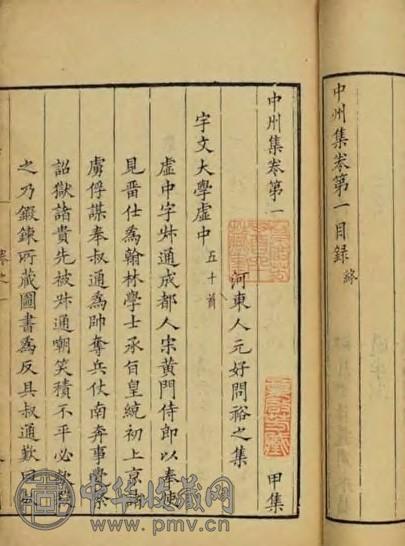 中州集卷第一目錄 終
中州集卷第一 甲集
河東人元好問裕之集
宇文大學虛中 五十首
虛中字叔通成都人宋黃門侍郎以奉使
見畱仕為翰林學士承旨皇統初上京諸
虜俘謀奉叔通為帥奪兵仗南奔事覺繫
詔獄諸貴先被叔通嘲笑積不平必欲
之乃鍛鍊所藏圖書為反具叔通歎曰
中华收藏网
www.pmv.cn